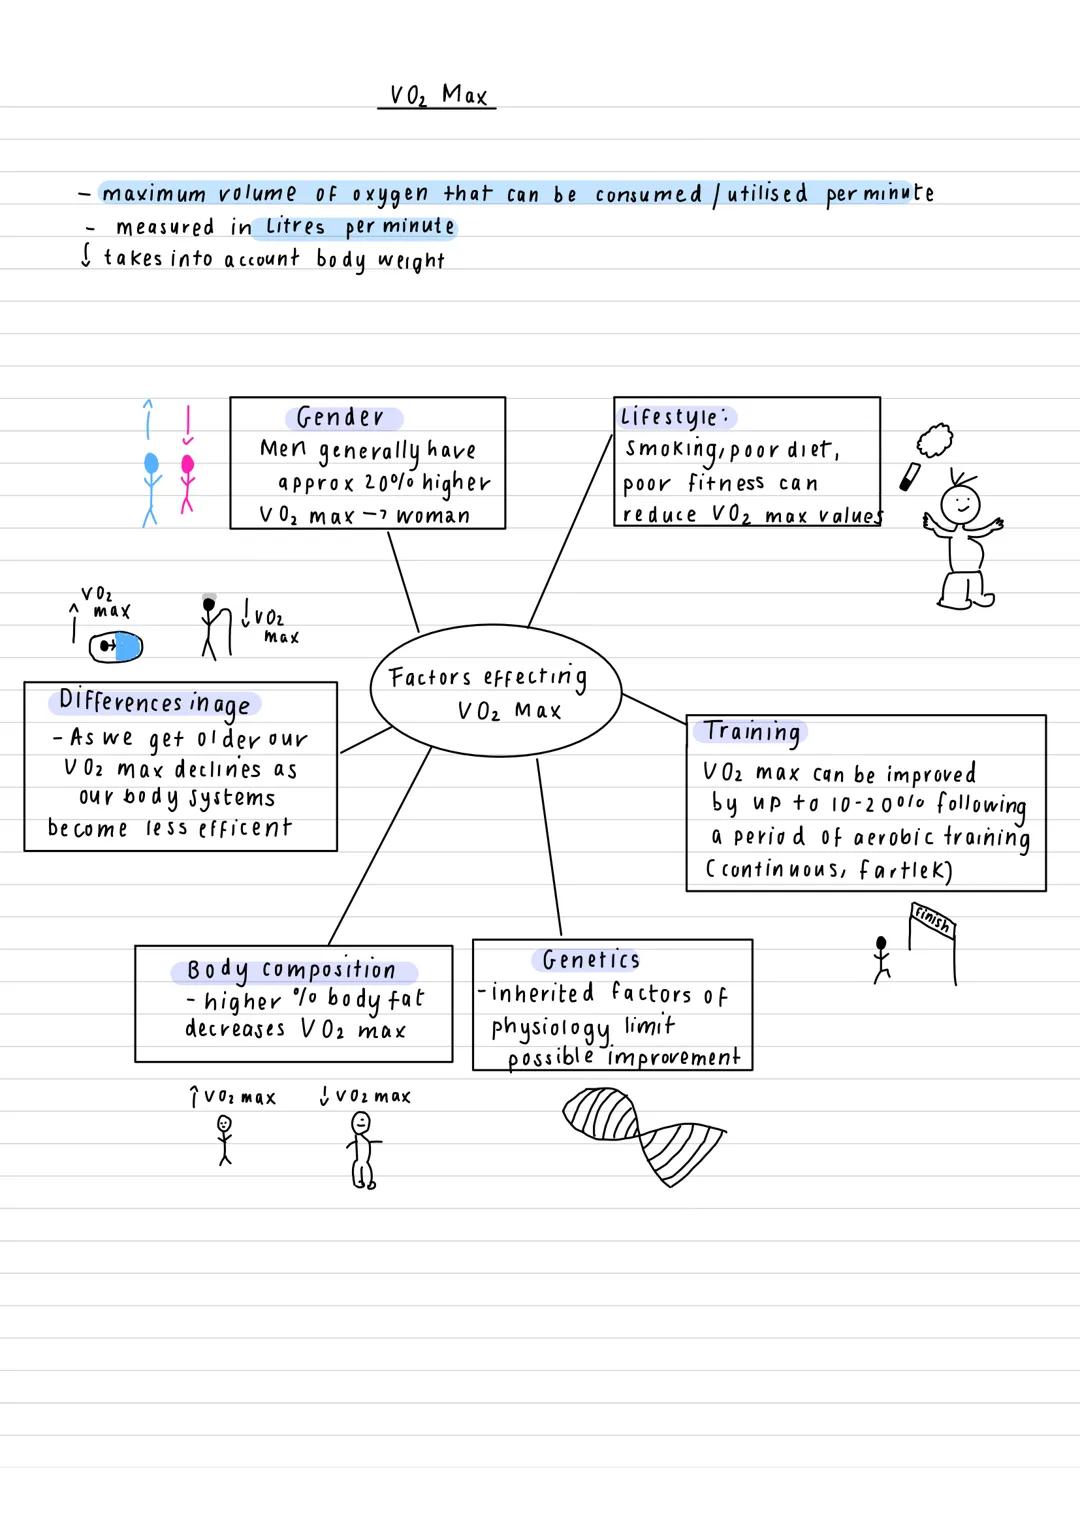 VO₂ Max
- maximum volume of oxygen that can be consumed / utilised per minute
- measured in Litres per minute
↓ takes into account body weight
Gender
Men generally have
approx 20% higher
VO₂ max → woman
Lifestyle:
Smoking, poor diet,
poor fitness can
reduce VO₂ max values
VO₂
↑ max
↓ VO₂
max
Factors effecting
VO₂ Max
Differences in age
- As we get older our
VO₂ max declines as
our body systems
become less efficent
Training
VO₂ max can be improved
by up to 10-20% following
a period of aerobic training
(continuous, fartlek)
finish
Body composition
- higher % body fat
decreases VO₂ max
Genetics
- inherited factors of
physiology limit
possible improvement
↑ VO₂ max
↓ VO₂ max